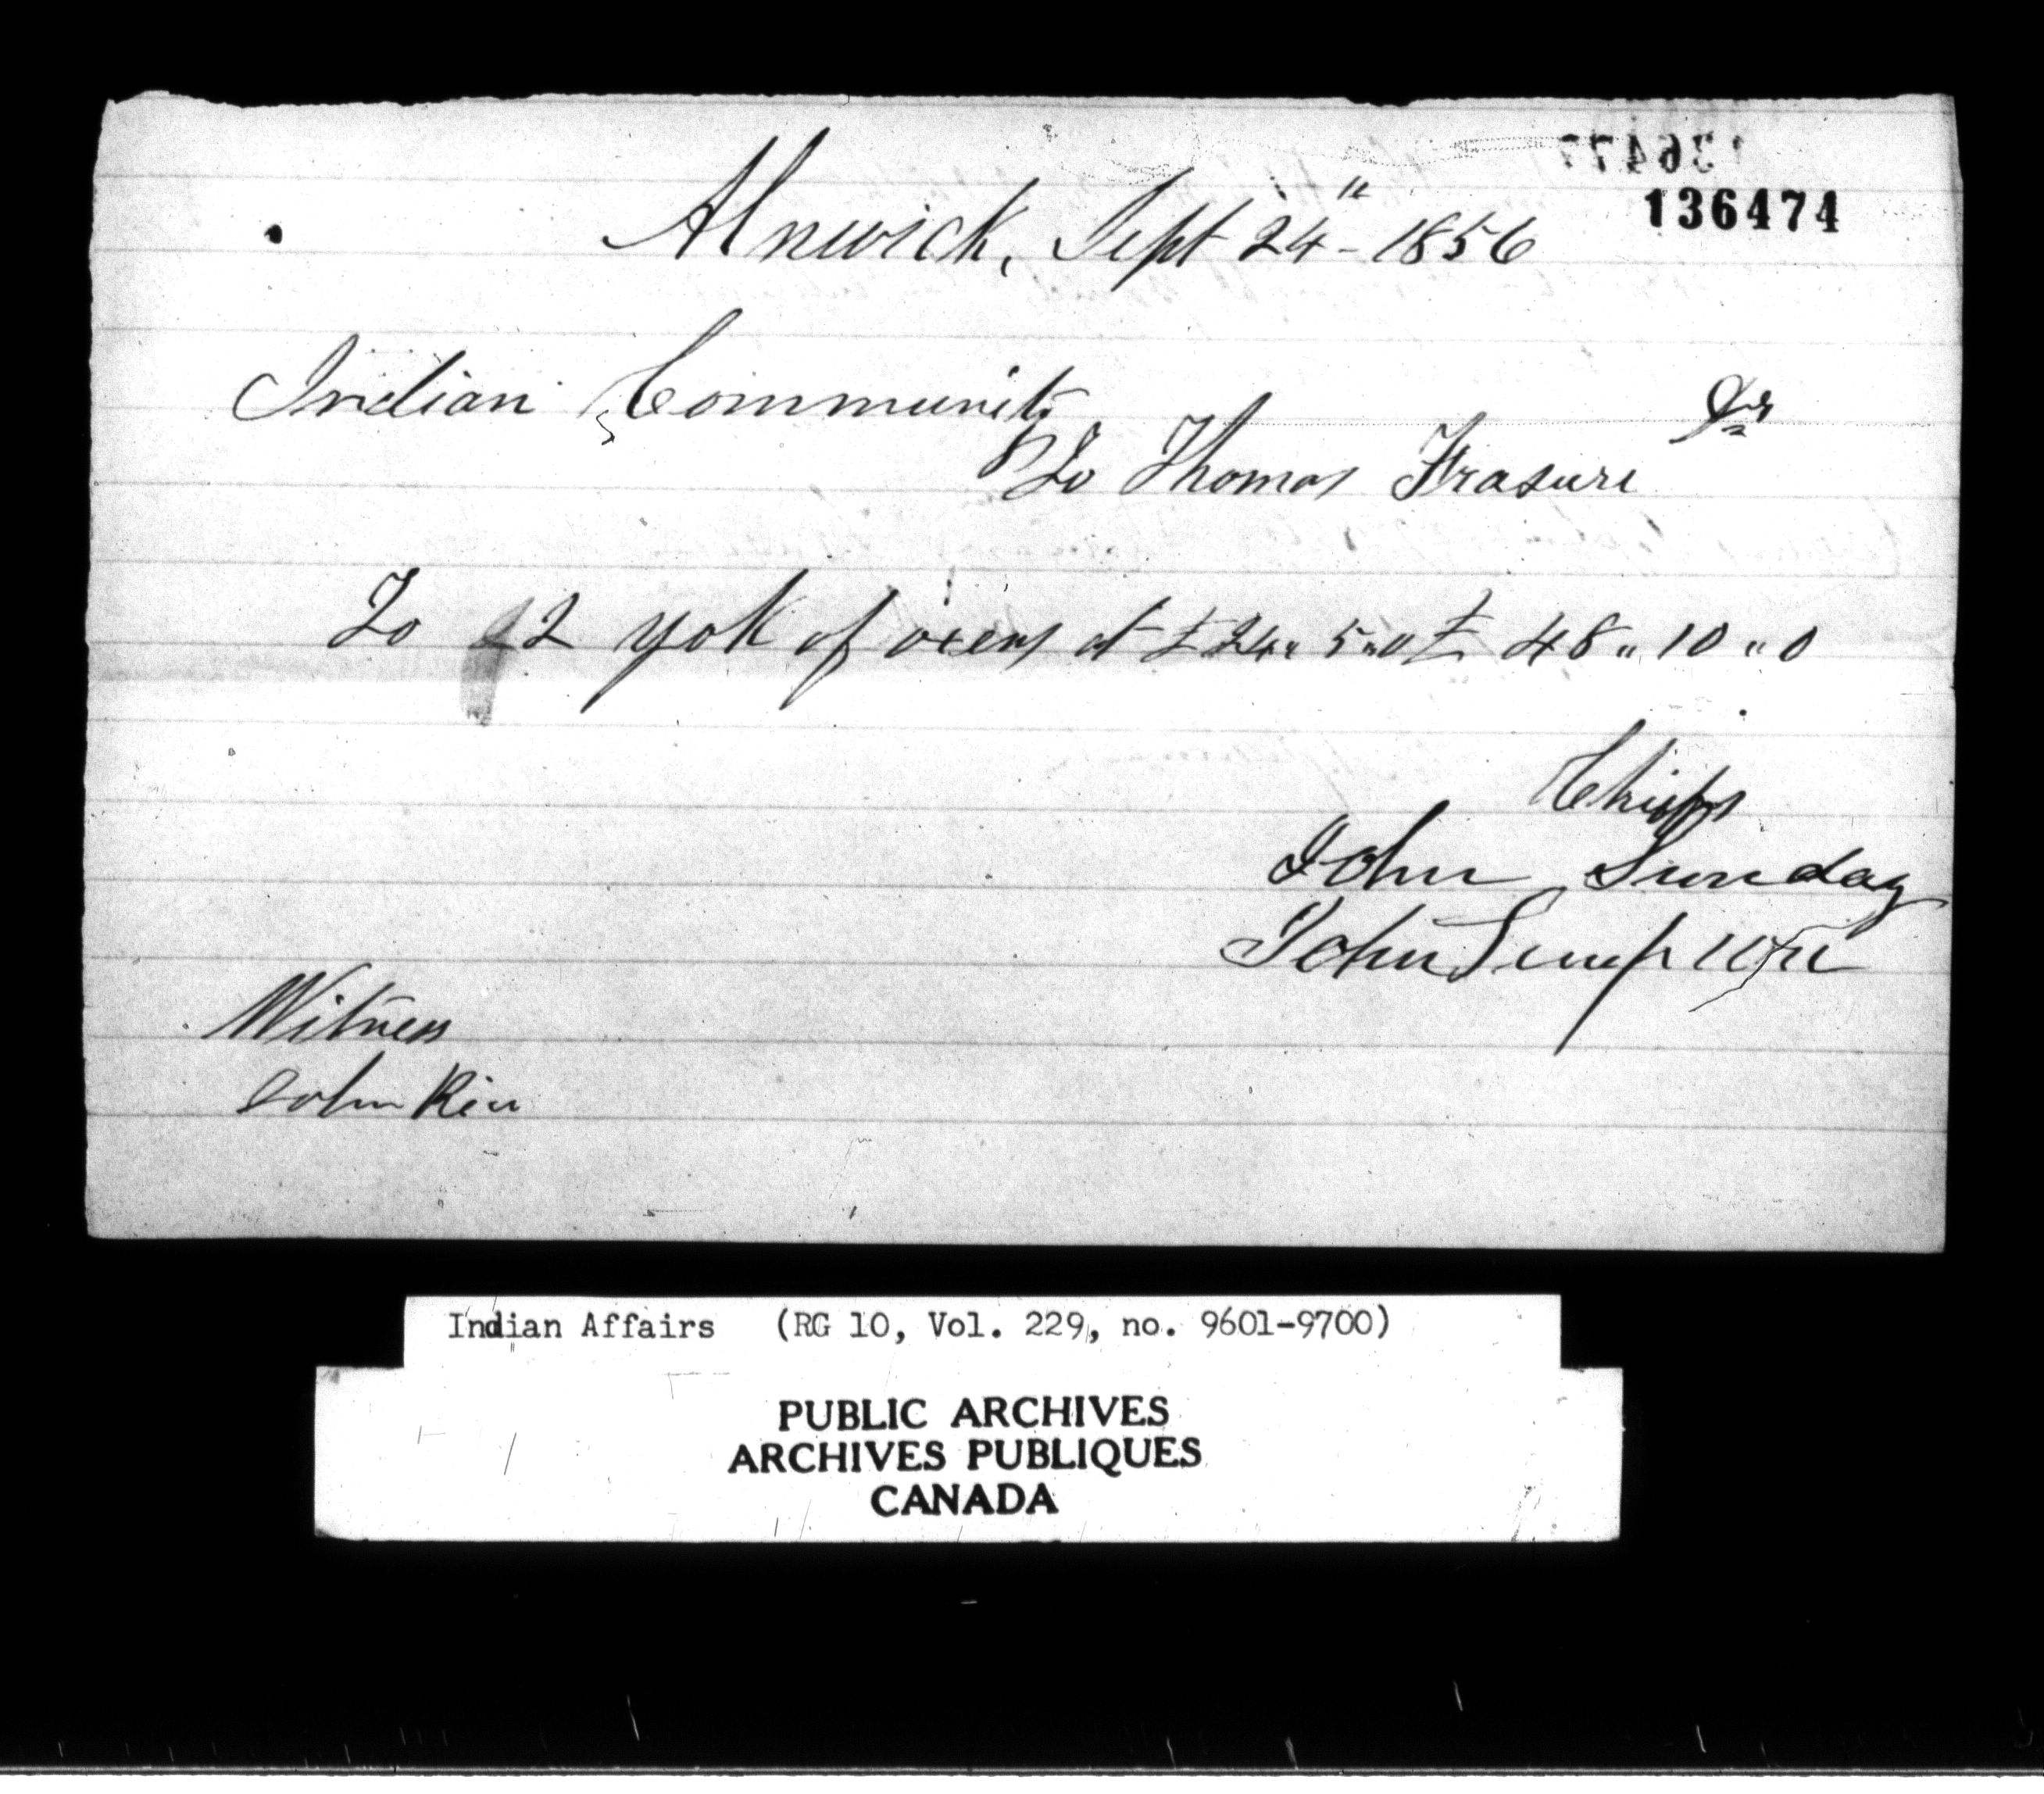 136477
136474
Alnwick, Sept 24" - 1856
Indian Community Dr
To Thomas Frasure
To 2 yok of oxens at £24" 5"0 £ 48"10"0
Chiefs
John Sunday
John Simpson
Witness
John
Indian Affairs (RG 10, Vol. 229, no. 9601-9700)
PUBLIC ARCHIVES
ARCHIVES PUBLIQUES
CANADA